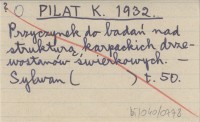 2 O PILAT K. 1932.
Przyczynek do badań nad
strukturą karpackich drze-
wostanów świerkowych. —
Sylwan ( ) t. 50.